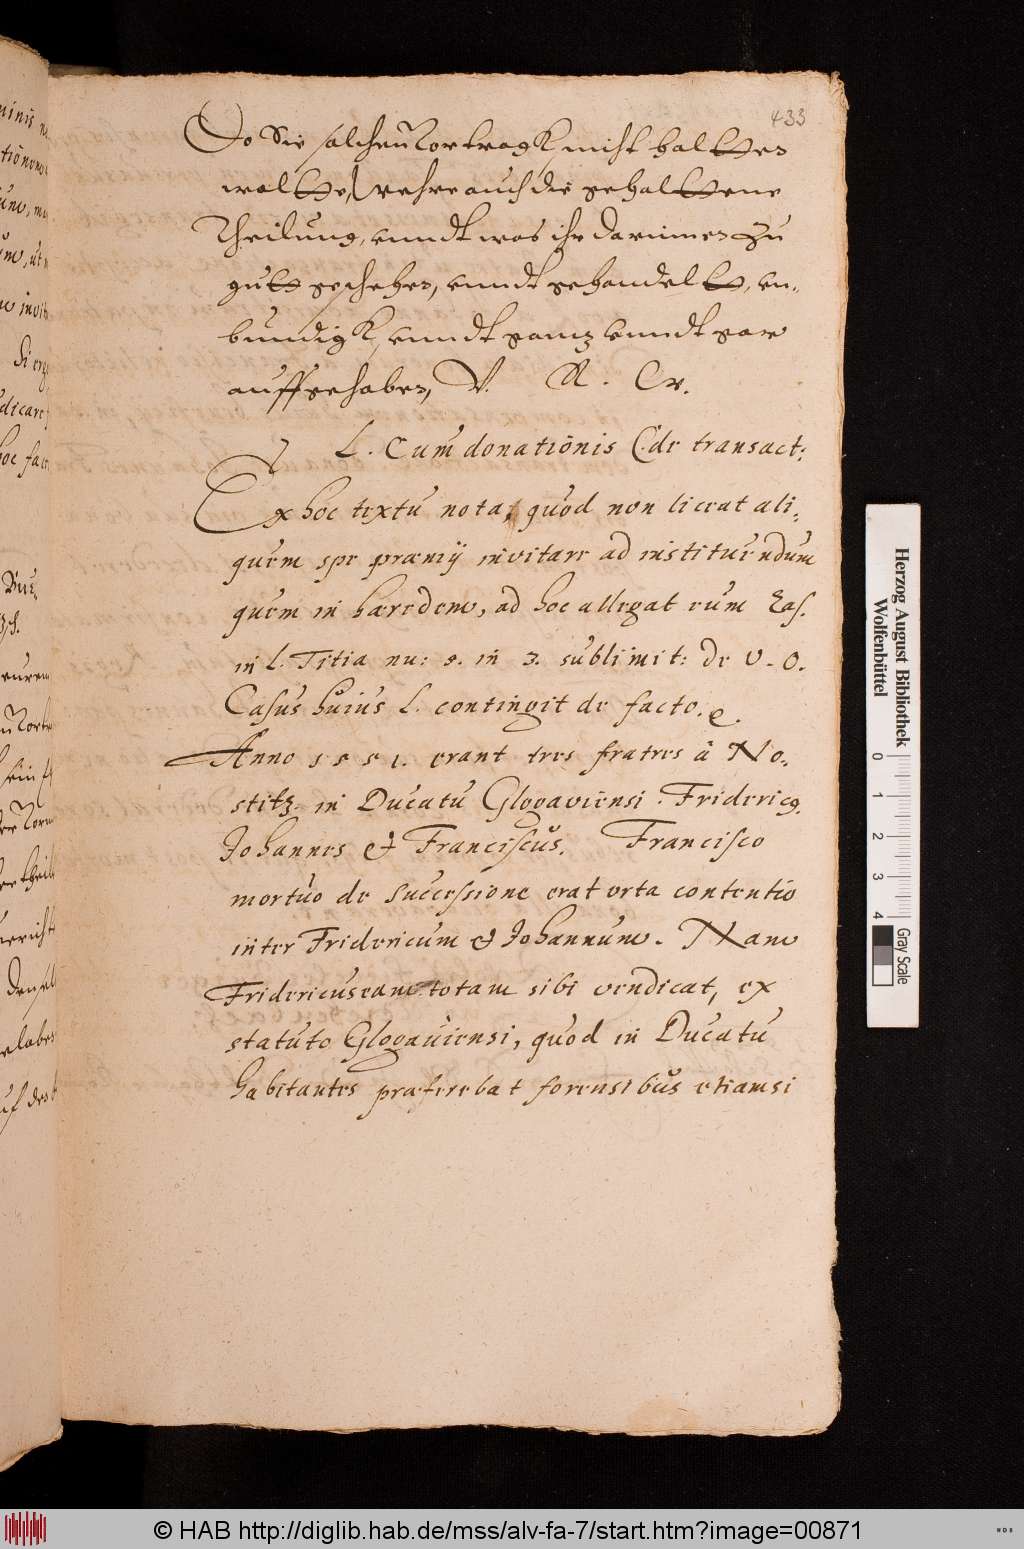 433
Do Sie solchen Vortragk nicht haltten
woltte, wehre auch die gehaltene
Theilung, vnndt was ihr darinnen zu
gutt geschehen, vnndt gehandeltt, vn-
bundigk, vnndt gantz vnndt gar
auffgehaben, V. R. W.
L. Cum donationis C. de transact:
Ex hoc textu nota, quod non liceat ali-
quem spe præmij invitare ad instituendum
quem in hæredem, ad hoc allegat eum Zas.
in L. Titia nu: 9. in 3. sublimit: de V. O.
Casus huius L. contingit de facto.
Anno 1551. erant tres fratres à No-
stitz. in Ducatu Glogaviensi. Fridericg.
Johannes & Franciscus. Francisco
mortuo de successione erat orta contentio
inter Fridericum & Johannum. Nam
Fridericus eam totam sibi vendicat, ex
statuto Glogauiensi, quod in Ducatu
habitantes præferebat forensibus etiamsi
Herzog August Bibliothek
Wolfenbüttel
0 1 2 3 4
Gray Scale
© HAB http://diglib.hab.de/mss/alv-fa-7/start.htm?image=00871